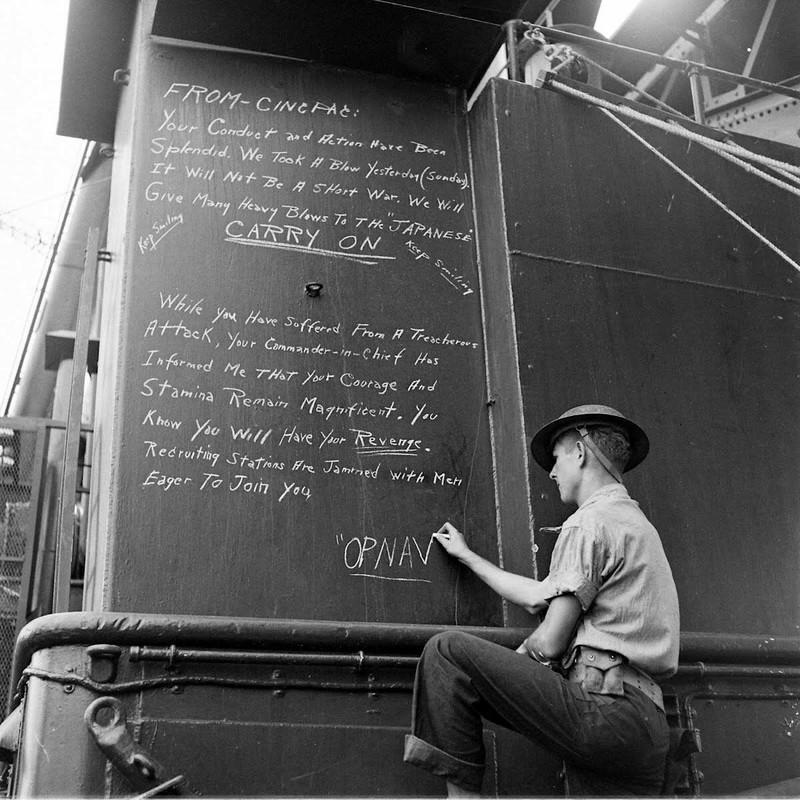 FROM-CINCPAC:
Your Conduct and Action Have Been
Splendid. We Took A Blow Yesterday (Sunday).
It Will Not Be A SHort War. We Will
Give Many Heavy Blows To THe "JAPANESE"
CARRY ON
Keep Smiling
Keep Smiling
While You Have Suffered From A Treacherous
Attack, Your Commander-in-Chief Has
Informed Me THat Your Courage And
Stamina Remain Magnificent. You
Know You Will Have Your Revenge.
Recruiting Stations Are Jammed with Men
Eager To Join You
"OPNAV